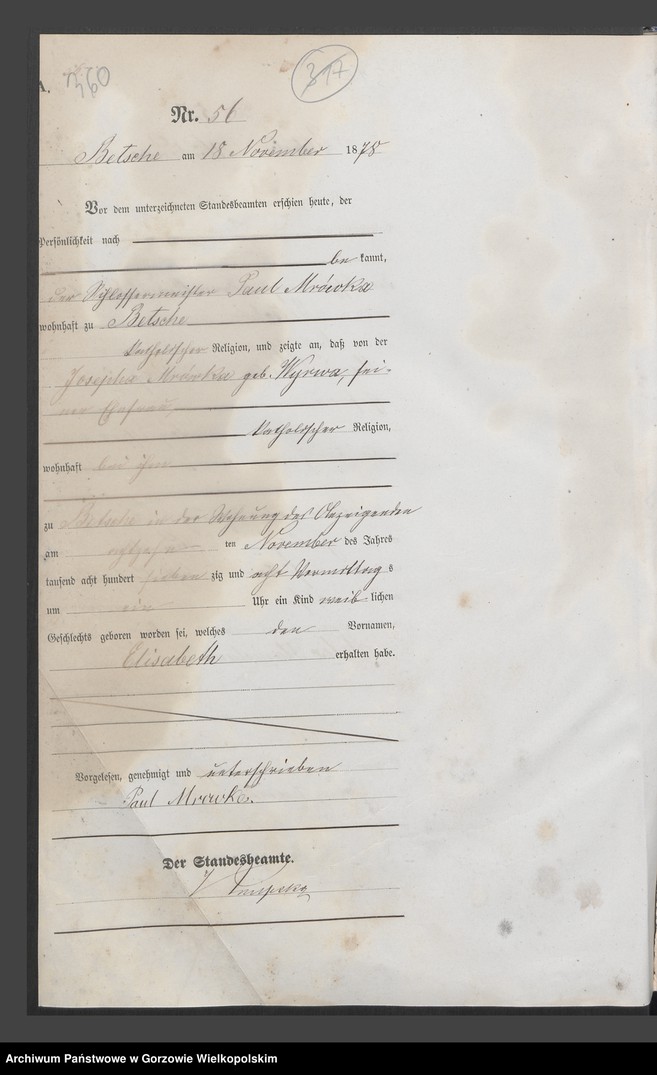 A. 360 317
Nr. 56
Betsche am 18 November 1878
Vor dem unterzeichneten Standesbeamten erschien heute, der
Persönlichkeit nach
be kannt,
der Schlossermeister Paul Mrówka
wohnhaft zu Betsche
katholischer Religion, und zeigte an, daß von der
Josepha Mrówka geb. Wyrwa, sei-
ner Ehefrau,
katholischer Religion,
wohnhaft bei ihm
zu Betsche in der Wohnung des Anzeigenden
am achtzehn ten November des Jahres
tausend acht hundert sieben zig und acht Vormittag s
um ein Uhr ein Kind weib lichen
Geschlechts geboren worden sei, welches den Vornamen,
Elisabeth erhalten habe.
Vorgelesen, genehmigt und unterschrieben
Paul Mrówka.
Der Standesbeamte.
Archiwum Państwowe w Gorzowie Wielkopolskim